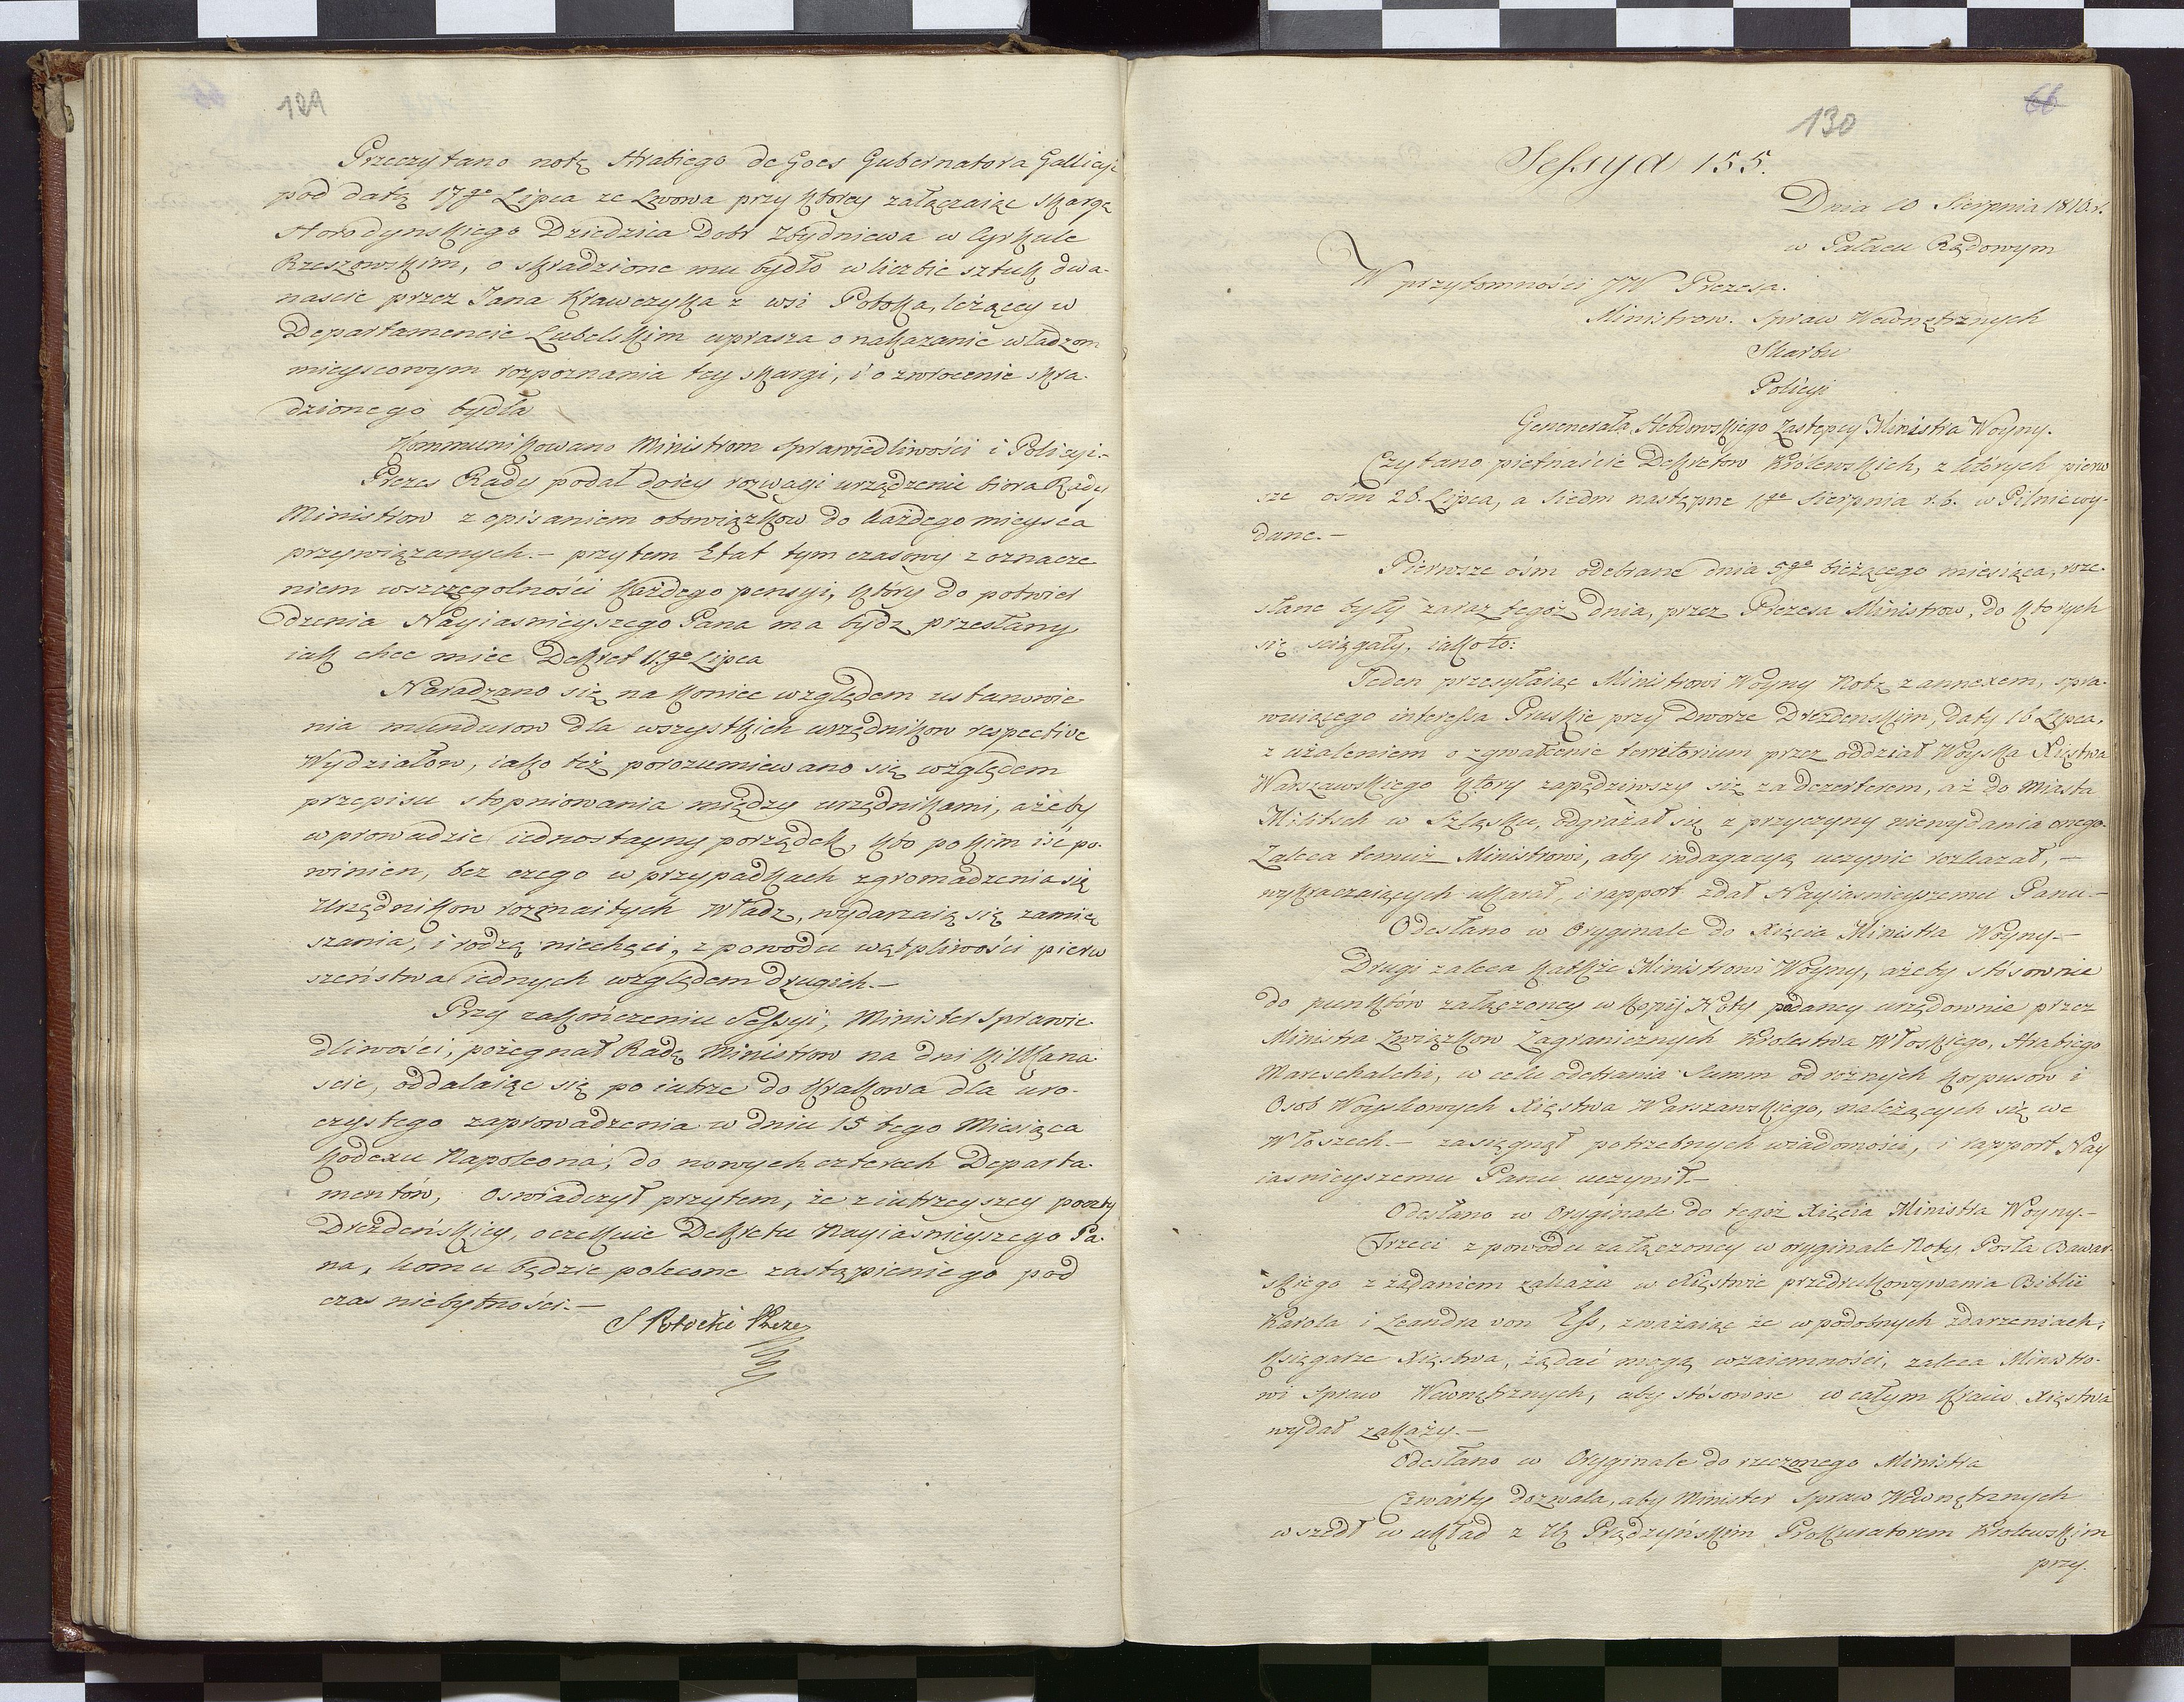 129
Przeczytano notę Hrabiego de Goes Gubernatora Gallicyi
pod datą 17go Lipca ze Lwowa przy ktorey załączaiąc skargę
Horodynskiego Dziedzica Dobr Zbydniewa w Cyrkule
Rzeszowskim, o skradzione mu bydło w liczbie sztuk dwa-
nascie przez Jana Krawczyka z wsi Potoka, leżącey w
Departamencie Lubelskim uprasza o nakazanie władzom
mieyscowym rozpoznania tey skargi, i o zwrocenie skra-
dzionego bydła
Kommunikowano Ministrom Sprawiedliwości i Policyi.-
Prezes Rady podał do iey rozwagi urządzenie biora Rady
Ministrow z opisaniem obowiązkow do każdego mieysca
przywiązanych.- przytem Etat tym czasowy z oznacze
niem wszczegolności każdego pensyi, który do potwier
dzenia Nayiasnieyszego Pana ma bydz przesłany
iak chce miec Dekret 11.go Lipca
Naradzano się na koniec względem ustanowie
nia mundurow dla wszystkich urzędnikow respective
Wydziałow, iako też porozumiewano się względem
przepisu stopniowania między urzędnikami, ażeby
wprowadzic iednostayny porządek, kto po kim iść po-
winien, bez czego w przypadkach zgromadzenia się
Urzędnikow rozmaitych Władz, wydarzaią się zamię
szania, i rodzą niechęci, z powodu wątpliwości pierw
szeństwa iednych względem drugich.-
Przy zakończeniu Sessyi, Minister Sprawie
dliwości, pożegnał Radę Ministrow na dni kilkana
scie, oddalaiąc się po iutrze do Krakowa dla uro-
czystego zaprowadzenia w dniu 15 tego Miesiąca
Kodexu Napoleona, do nowych czterech Departa-
mentów, oswiadczył przytem, że z iutrzeyszey poczty
Drezdeńskiey, oczekuie Dekretu Nayiasnieyszego Pa-
na, komu będzie polecone zastąpienie go pod
czas niebytności.-
S Potocki Prezes
66
130
Sessya 155.
Dnia 10 Sierpnia 1810. r.
w Pałacu Rządowym
W przytomności JW Prezesa.
Ministrow. Spraw Wewnętrznych
Skarbu
Policyi
Genenerała Hebdowskiego Zastepcy Ministra Woyny.
Czytano pietnaście Dekretow Królewskich, z których pierw
sze ośm 28. Lipca, a siedm następne 1go Sierpnia r. b. w Pilnic wy-
dane.-
Pierwsze ośm odebrane dnia 5go bieżącego miesiąca, roze-
słane były zaraz tegoż dnia, przez Prezesa Ministrow, do ktorych
się sciągały, iako to:
Jeden przesyłaiąc Ministrowi Woyny Notę z annexem, spra-
wuiącego interessa Pruskie przy Dworze Drezdenskim, daty 16 Lipca,
z użaleniem o zgwałcenie territorium przez oddział Woyska Xięstwa
Warszawskiego ktory zapędziwszy się za dezerterem, aż do Miasta
Militsch w Szląsku, odgrażał się z przyczyny niewydania onego.
Zaleca temuż Ministrowi, aby indagacyą uczynic rozkazał, -
wykraczaiących ukarał, i rapport zdał Nayiasnieyszemu Panu.-
Odesłano w Oryginale do Xięcia Ministra Woyny.-
Drugi zaleca także Ministrowi Woyny, ażeby stósownie
do punktów załączoney w kopij Noty podaney urzędownie przez
Ministra Związkow Zagranicznych Krolestwa Włoskiego, Hrabiego
Mareschalchi, w celu odebrania Summ od rożnych korpusow i
Osob Woyskowych Xięstwa Warszawskiego, należących się we
Włoszech.- zasięgnął potrzebnych wiadomości, i rapport Nay
iasnieyszemu Panu uczynił.-
Odesłano w Oryginale do tegoż Xięcia Ministra Woyny.-
Trzeci z powodu załączoney w oryginale Noty Posła Bawar-
skiego z żądaniem zakazu w Xięstwie przedrukowywania Biblii
Karola i Leandra von Ess, zważaiąc że w podobnych zdarzeniach,
Księgarze Xięstwa, żądać mogą wzaiemności, zaleca Ministro-
wi Spraw Wewnętrznych, aby stósowne w całym kraiu Xięstwa
wydał zakazy.-
Odesłano w Oryginale do rzeczonego Ministra
Czwarty dozwala, aby Minister Spraw Wewnętrznych
wszedł w układ z Ur Prądzyńskim Prokuratorem Krolewskim
przy-